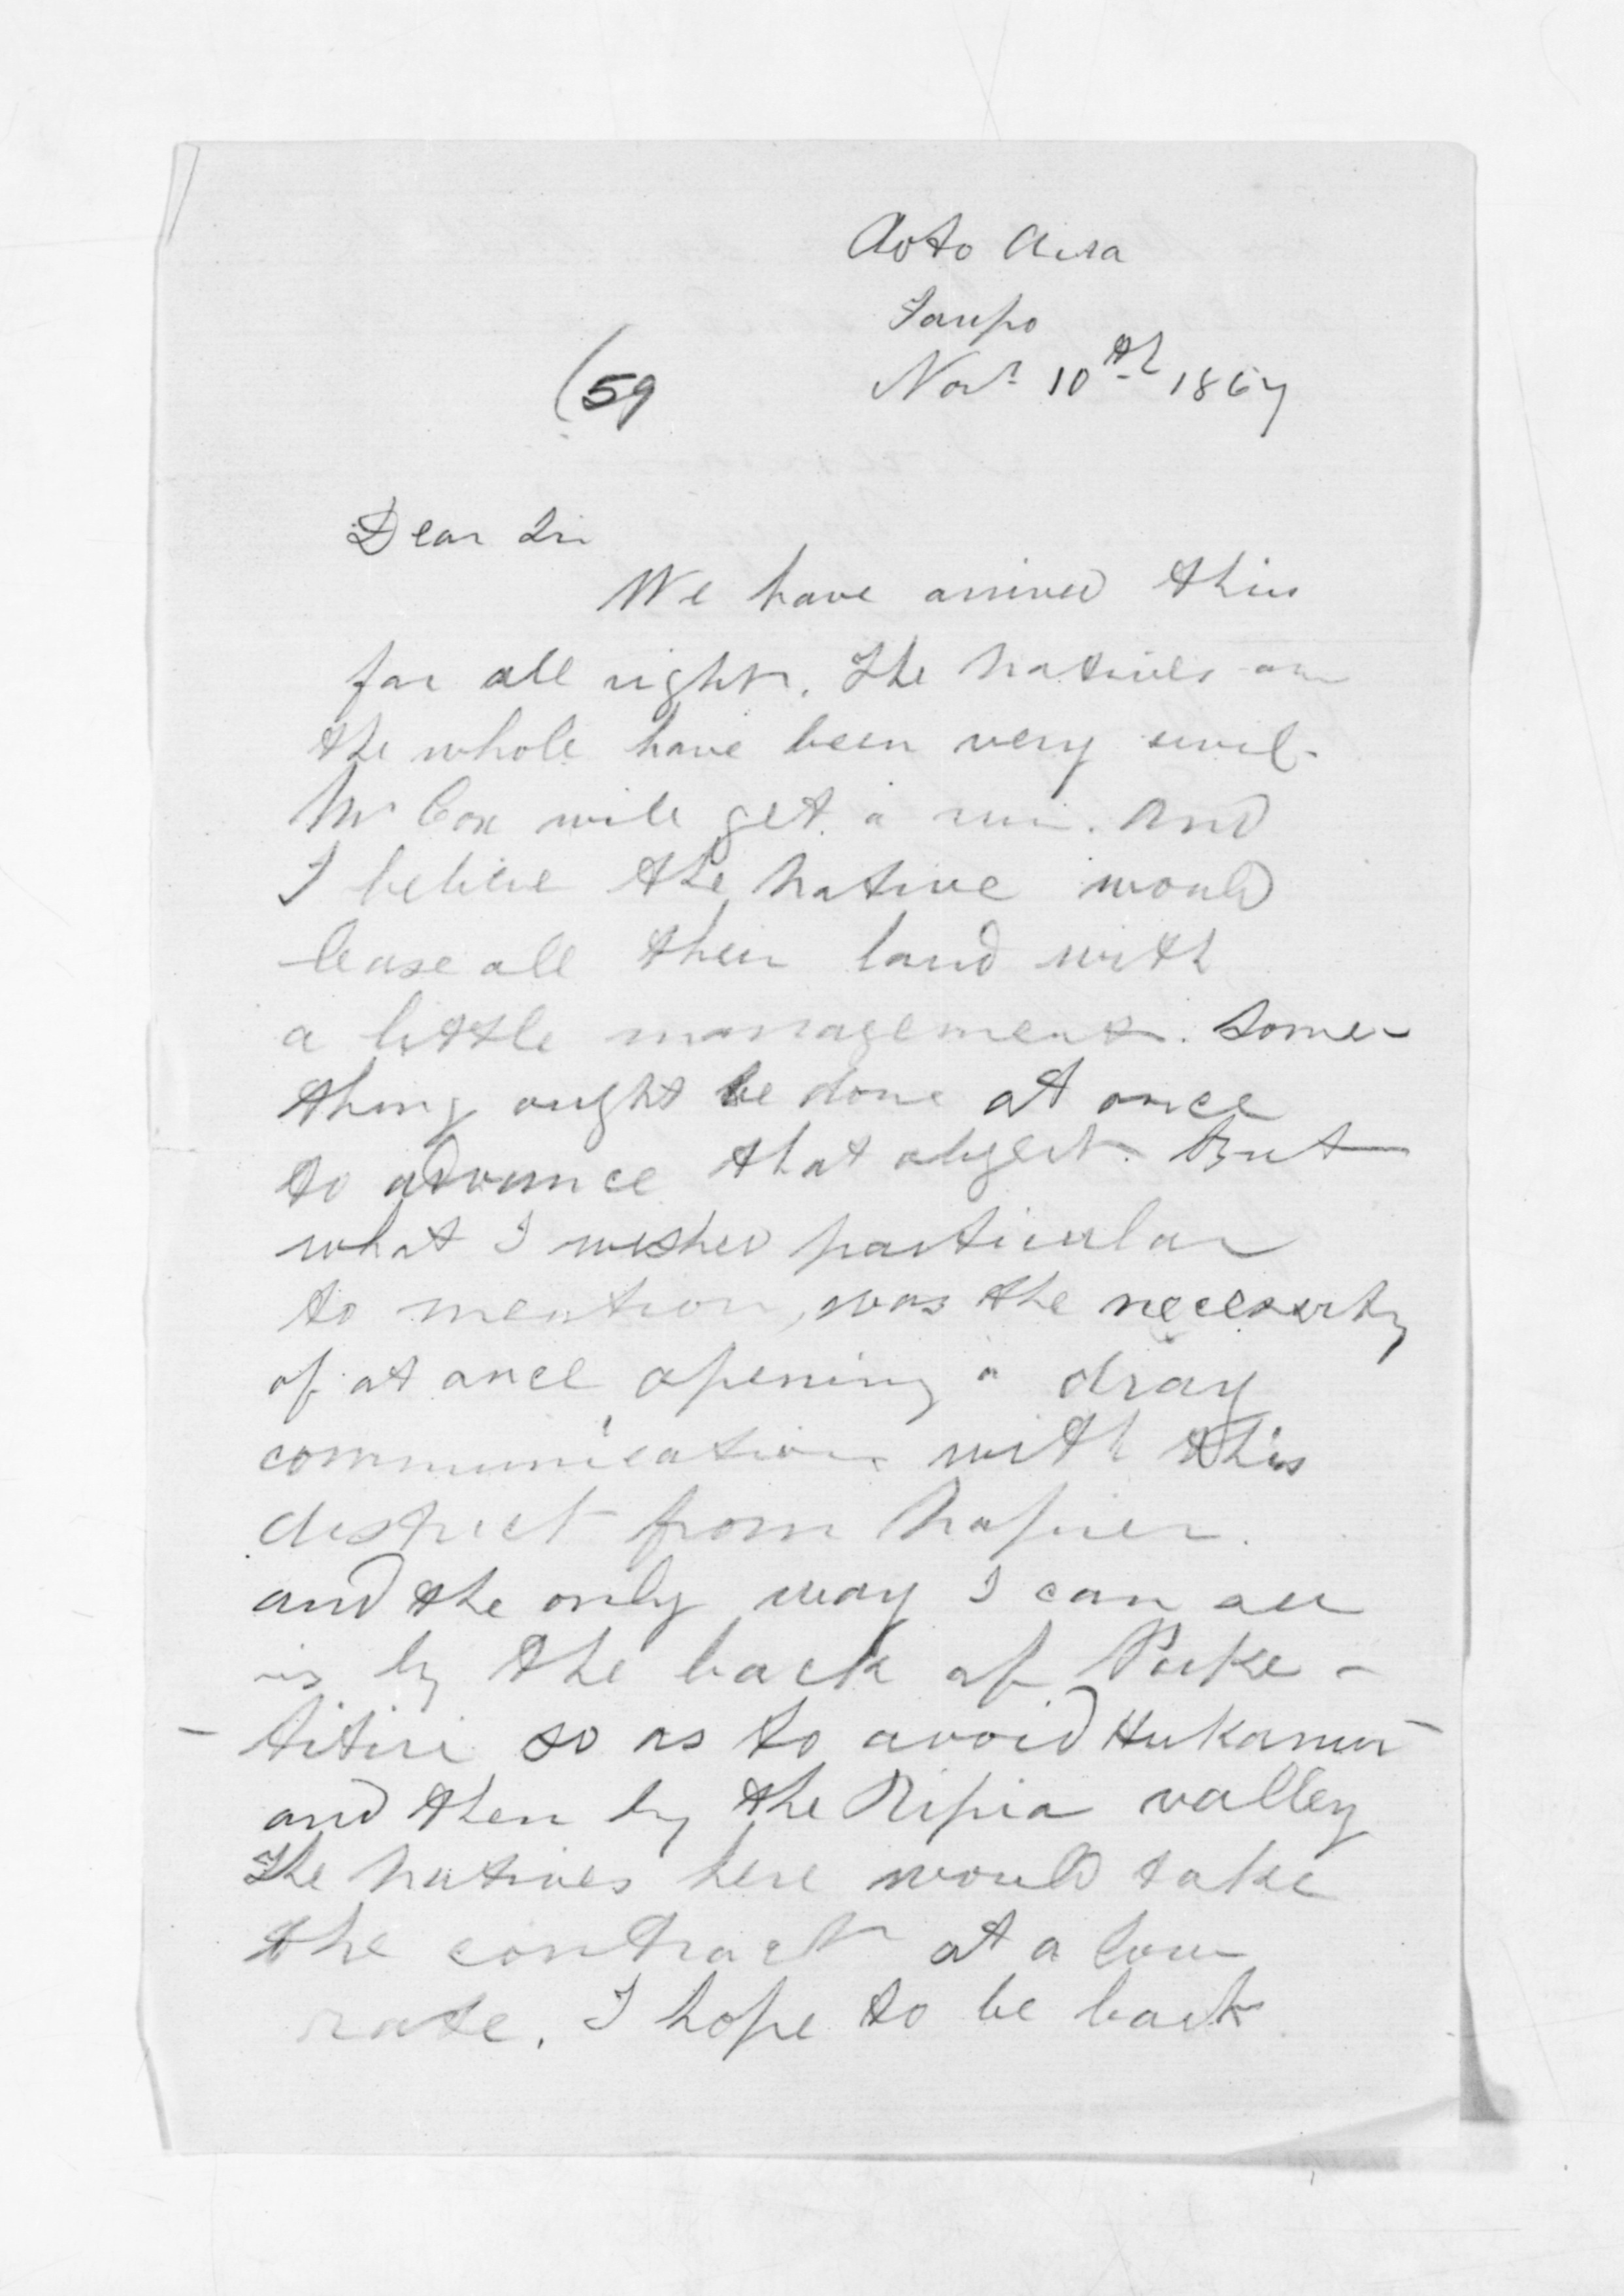 Roto Aira
Taupo
Novr 10th 1867
(59
Dear Sir
We have arrived thus
far all right. The Natives on
the whole have been very civil.
Mr Cox will get a run. And
I believe the Native would
lease all their land with
a little management. Some-
thing ought be done at once
to advance that object. But
what I wished particular
to mention, was the necessity
of at once opening a dray
communication with this
district from Napier.
and the only way I can see
is by the back of Puke-
-titiri so as to avoid
and then by the Ripia valley
The Natives here would take
the contract at a low
rate. I hope to be back